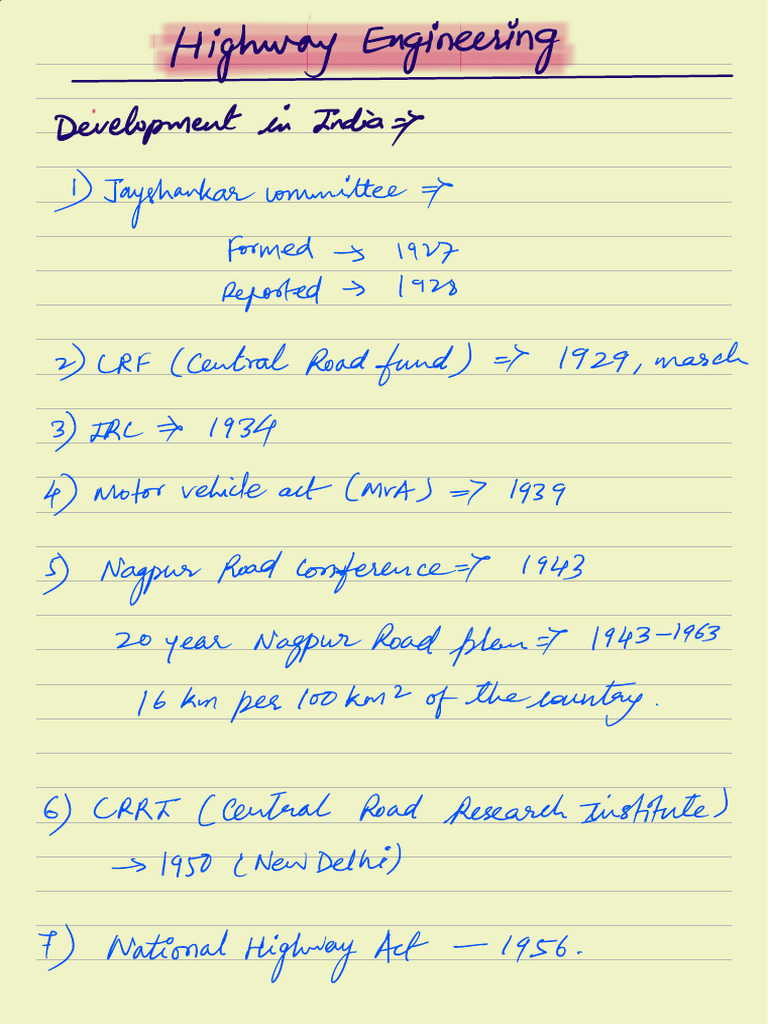 Highway Engineering
Development in India ⇒
1) Jayshankar committee ⇒
Formed → 1927
Reported → 1928
2) CRF (Central Road fund) ⇒ 1929, march
3) IRC ⇒ 1934
4) Motor vehicle act (MVA) ⇒ 1939
5) Nagpur Road conference ⇒ 1943
20 year Nagpur Road plan ⇒ 1943-1963
16 km per 100 km² of the country.
6) CRRI (Central Road Research Institute)
→ 1950 (New Delhi)
7) National Highway Act — 1956.